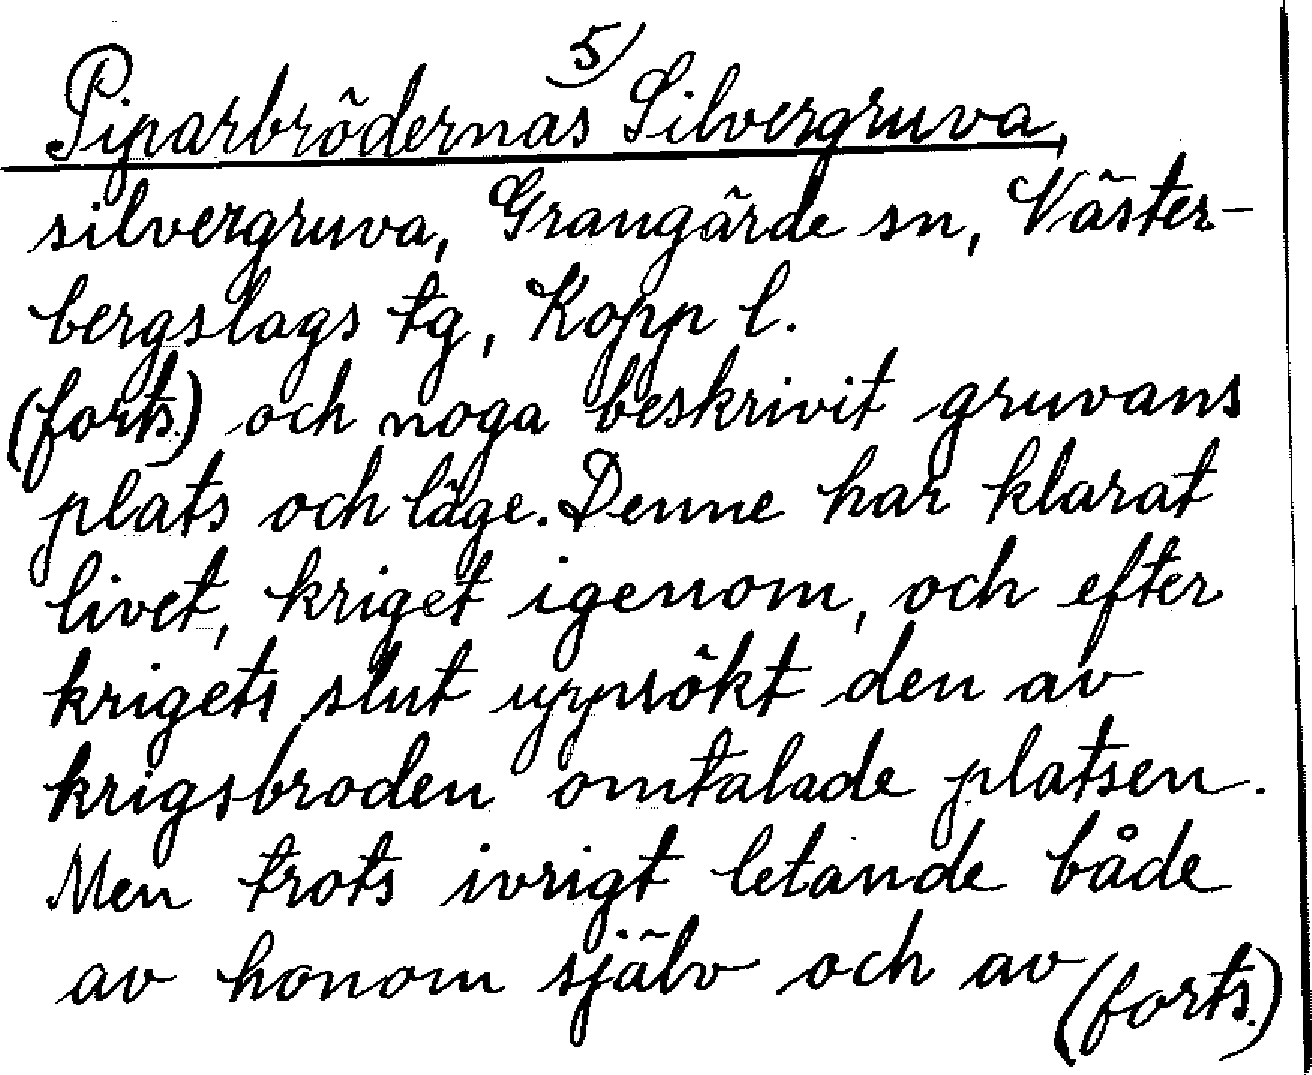 5)
Piparbrödernas Silvergruva,
silvergruva, Grangärde sn, Väster-
bergslags tg, Kopp l.
(forts.) och noga beskrivit gruvans
plats och läge. Denne har klarat
livet, kriget igenom, och efter
krigets slut uppsökt den av
krigsbroden omtalade platsen.
Men trots ivrigt letande både
av honom själv och av (forts.)